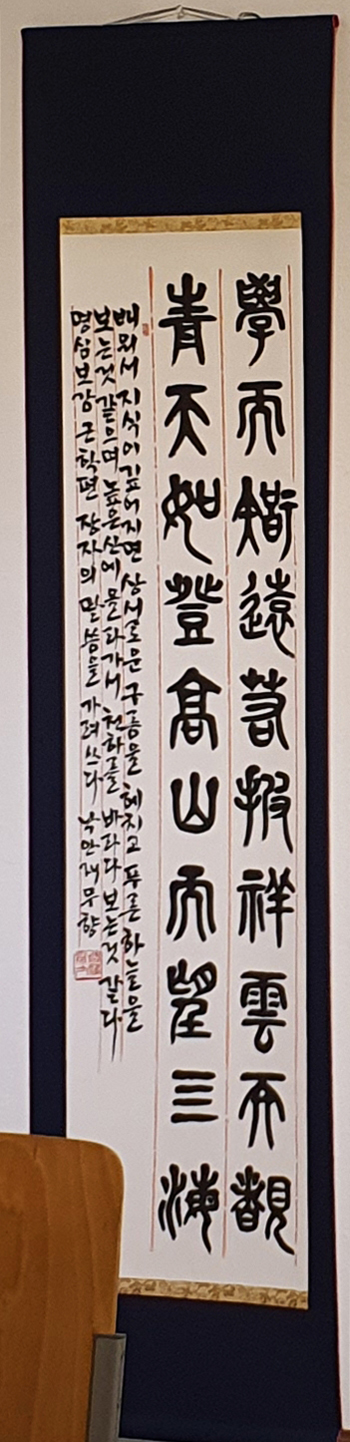 學而智遠若披祥雲而覩
靑天如登高山而望三海
배워서 지식이 깊어지면 상서로운 구름을 헤치고 푸른 하늘을
보는것 같으며 높은 산에 올라가서 천하를 바라다 보는것 같다
명심보감 근학편 장자의 말씀을 가려 쓰다 낙안재 무향